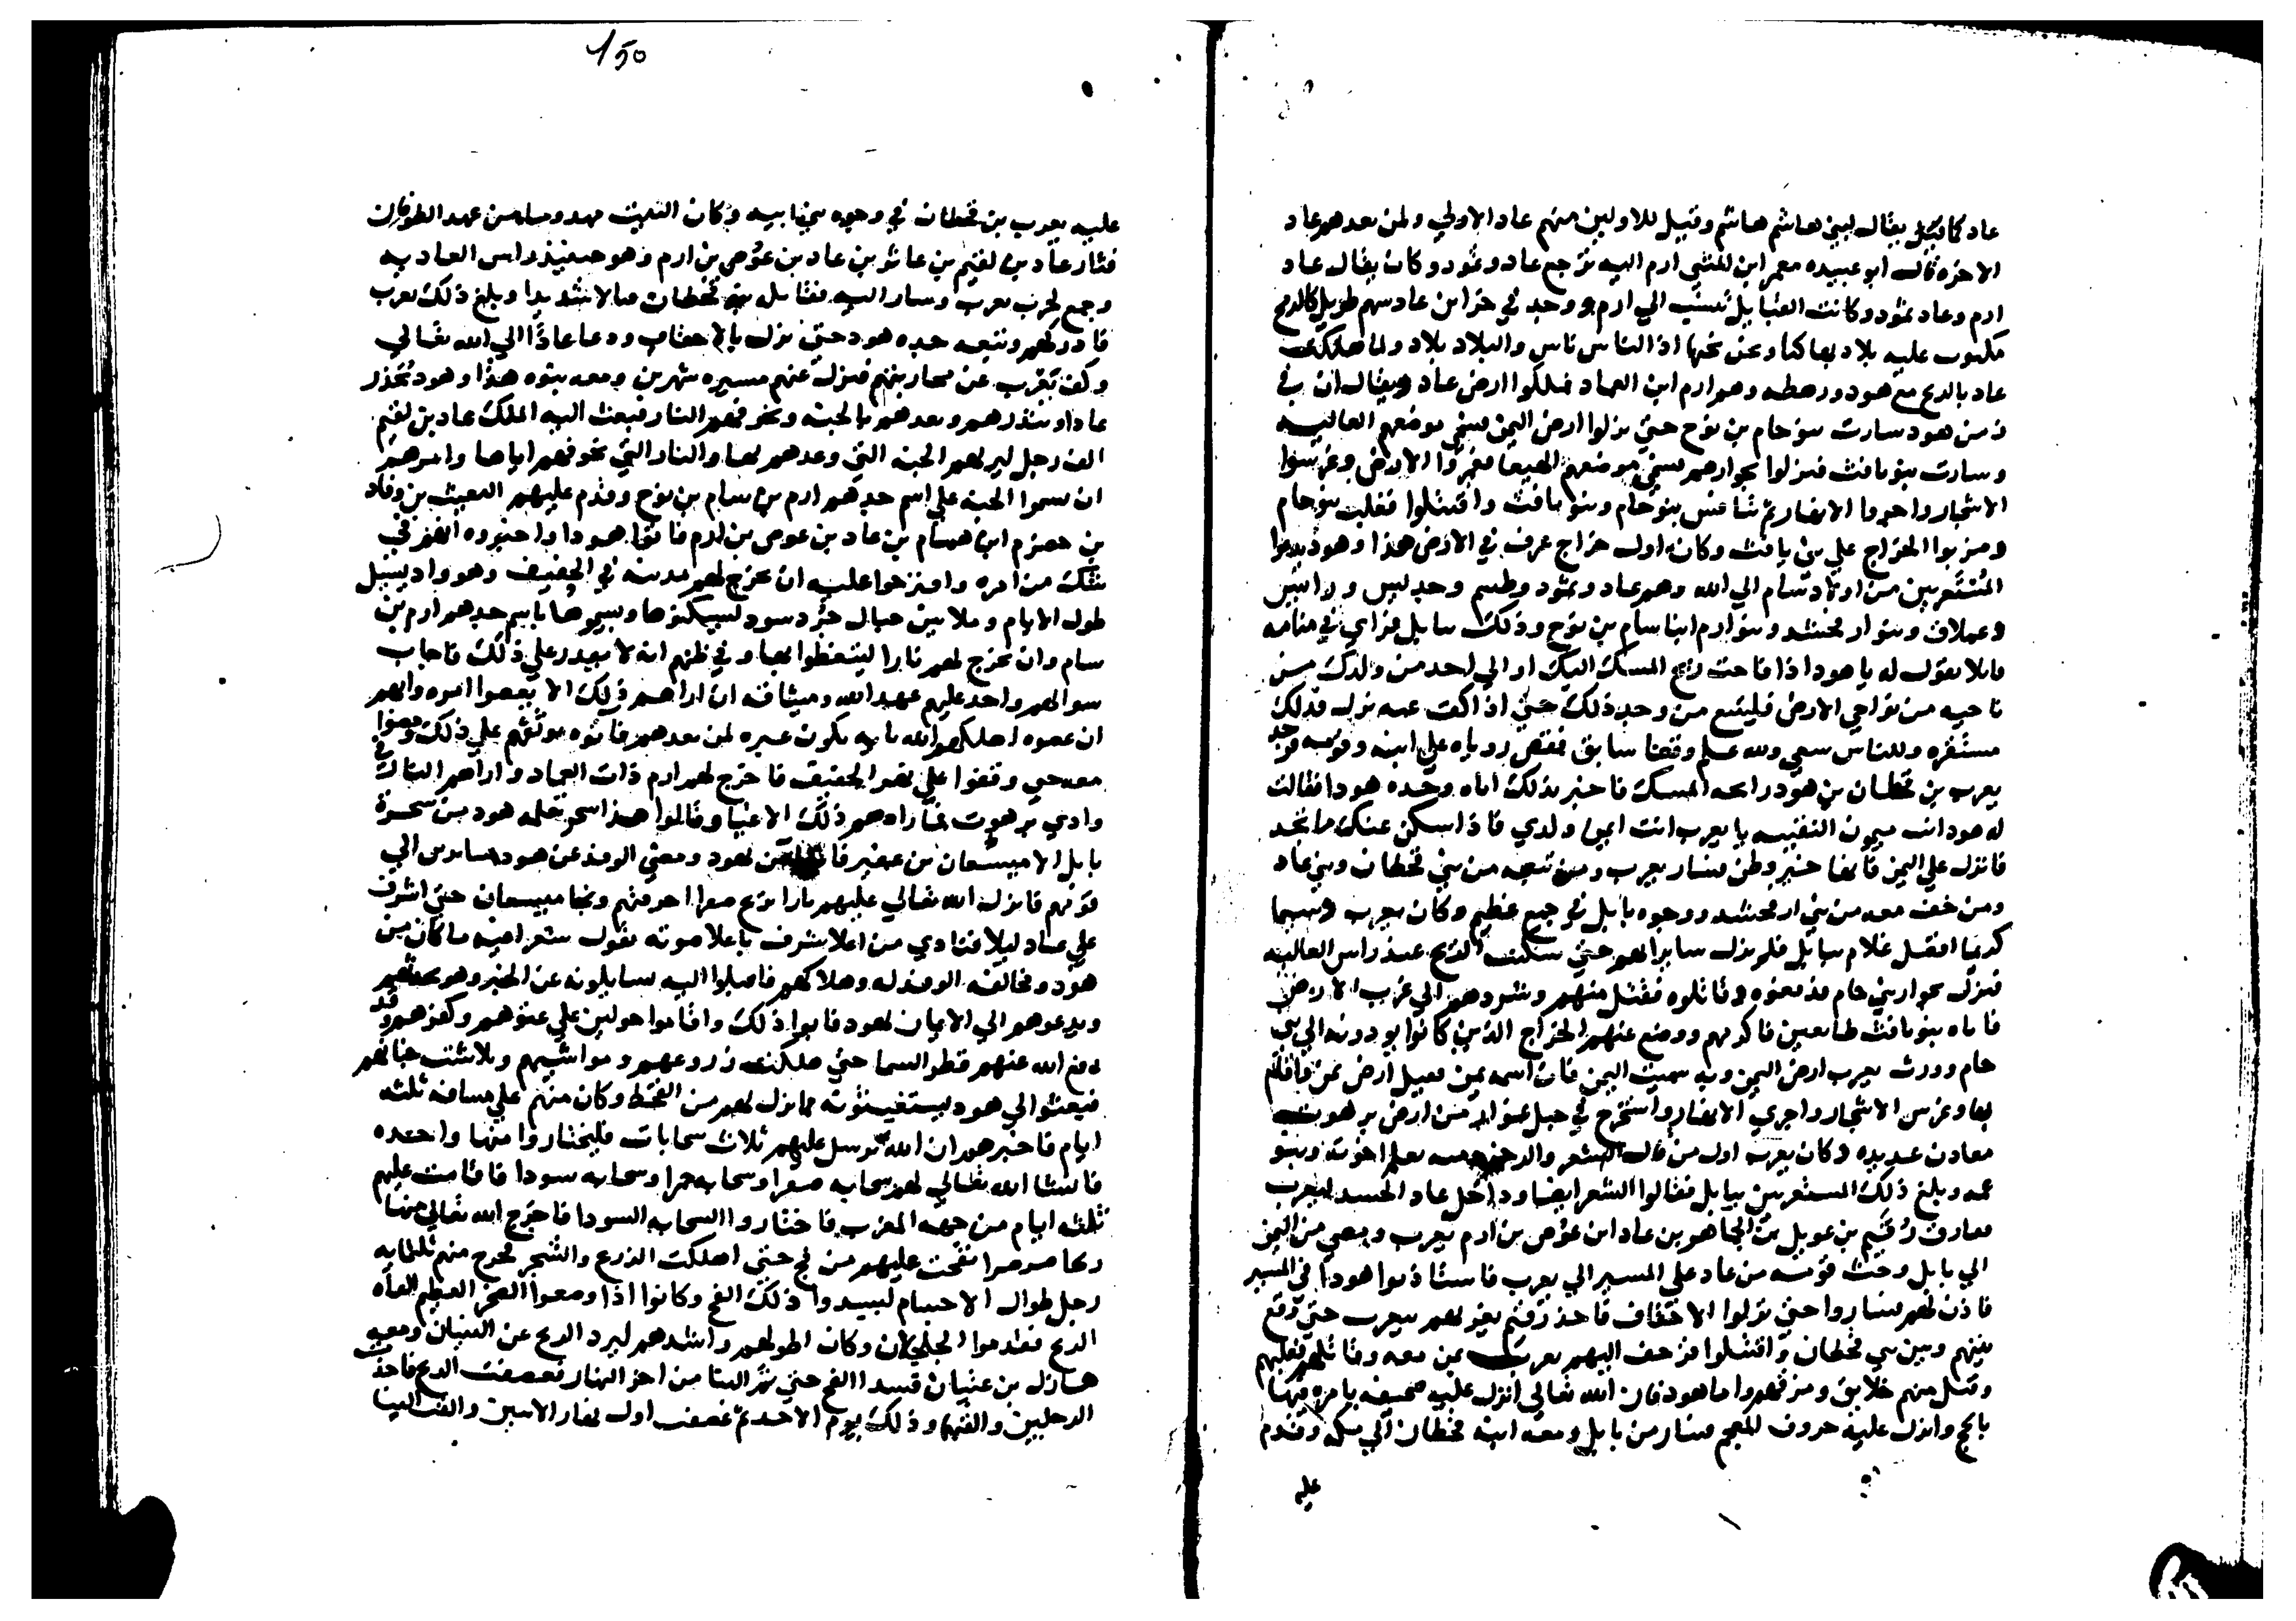 عاد كما قيل يقال لبني هاشم هاشم وقيل للاولين منهم عاد الاولي ولمن بعدهم عاد
الاخره قال ابو عبيده معمر ابن المثني ارم اليه ترجع عاد وثمود وكان يقال عاد
ارم وعاد ثمود وكانت القبايل تنسب الي ارم ووجد في خزاين عاد سهم طويل كالرمح
مكتوب عليه بلاد بها كنا ونحن نحبها اذ الناس ناس والبلاد بلاد ولما هلكت
عاد بالريح مع هود ورهطه وهم ارم ابن العماد فملكوا ارض عاد ويقال ان في
زمن هود سارت بنو حام بن نوح حتي نزلوا ارض اليمن فسمي موضعهم العاليه
وسارت بنو يافث فنزلوا بجوارهم فسمي موضعهم الهيعا فعمروا الارض وغرسوا
الاشجار واجروا الانهار ثم تنافس بنو حام وبنو يافث واقتتلوا فغلبت بنو حام
وضربوا الخراج علي بني يافث وكان اول خراج عرف في الارض هذا وهود يدعوا
المستعربين من اولاد سام الي الله وهم عاد وثمود وطسم وجديس ورايس
وعملاق وبنو ارفخشد وبنو ارم ابنا سام بن نوح وذلك ببابل فراي في منامه
قايلا يقول له يا هود اذا فاحت ريح المسك اليك او الي احد من ولدك من
ناحيه من نواحي الارض فليتبع من وجد ذلك حتي اذا كفت عنه نزل فذلك
مستقره وللناس سعي ولله علم وقضا سابق فقص روياه علي ابنه وقومه فوجد
يعرب بن قحطان بن هود رايحه المسك فاخبر بذلك اباه وجده هودا فقال
له هود انت ميمون النقيبه يا يعرب انت ايمن ولدي فاذا سكن عنك ما تجد
فانزل علي اليمن فانها خير وطن فسار يعرب ومن تبعه من بني قحطان وبني عاد
ومن خف معه من بني ارفخشد ووجوه بابل في جمع عظيم وكان يعرب وسيما
كريما افضل غلام ببابل فلم يزل سايرا بهم حتي سكنت الريح عند راس العاليه
فنزل بجوار بني حام فدفعوه وقاتلوه فقتل منهم وشردهم الي غرب الارض
فاتاه بنو يافث طايعين فاكرمهم ووضع عنهم الخراج الذي كانوا يودونه الي بني
حام وورث يعرب ارض اليمن وبه سميت اليمن فان اسمه يمن فقيل ارض يمن فاقام
بها وغرس الاشجار واجري الانهار واستخرج في جبل من ارض برهوت
معادن عديده وكان يعرب اول من قال الشعر اخوته وبنو
عمه وبلغ ذلك المستعربين ببابل فقالوا الشعر ايضا وداخل عاد الحسد ليعرب
بن عويل بن الجاهر بن عاد ابن عوص بن ارم يعرب ومضي من اليمن
الي بابل وحث قومه من عاد علي المسير الي يعرب فاستاذنوا هودا في المسير
فاذن لهم فساروا حتي نزلوا الاحقاف فاخذ يغير بهم يعرب حتي وقع
بينهم وبين بني قحطان واقتتلوا فزحف اليهم يعرب بمن معه وقاتلهم فغلبهم
وقتل منهم خلايق ومزقهم واما هود فان الله تعالي انزل عليه صحيفه يامره فيها
بالحج وانزل عليه حروف المعجم فسار من بابل ومعه ابنه قحطان الي مكه وقدم
عليه
150
عليه يعرب بن قحطان في وجوه بني ابيه وكان البيت مهدوما من عهد الطوفان
فثار عاد بن لقيم بن عابر بن عاد بن عوص بن ارم وهو حينيذ راس العاديه
وجمع لحرب يعرب وسار اليه فقاتله بنو قحطان قتالا شديدا وبلغ ذلك يعرب
فادركهم وتبعه جده هود حتي نزل بالاحقاف ودعا عادا الي الله تعالي
وكف يعرب عن محاربتهم فنزل عنهم مسيره شهرين ومعه بنوه هذا وهود يحذر
عادا وينذرهم ويعدهم بالجنه ويخوفهم النار فبعث اليه الملك عاد بن لقيم
الف رجل ليريهم الجنه التي وعدهم بها والنار التي يخوفهم اياها وامرهم
ان يسموا الجنه علي اسم جدهم ارم بن سام بن نوح وقدم عليهم البعيث بن وقاد
بن هصرم ابن هسام بن عاد بن عوص بن ارم فاتوا هودا واخبروه انهم في
شك من امره واقترحوا عليه ان يخرج لهم مدينه في الحفيف وهو واد يسيل
طول الايام وملا بين جبال جرد سود ليسكنوها ويسموها باسم جدهم ارم بن
سام وان يخرج لهم نارا ليتعظوا بها وفي ظنهم انه لا يقدر علي ذلك فاجاب
سوالهم واخذ عليهم عهد الله وميثاقه ان اراهم ذلك الا يعصوا امره وانهم
ان عصوه اهلكهم الله بايه يكون عبره لمن بعدهم فاتوه موثقهم علي ذلك ومضوا
معه حتي وقفوا علي نهر الحفيف فاخرج لهم ارم ذات العماد واراهم النار في
وادي برهوت فما زادهم ذلك الا عتيا وقالوا هذا سحر تعلمه هود من سحره
بابل الا ميسعان بن عفير بهود ومضي الوفد عن هود سايرين الي
قومهم فانزل الله تعالي عليهم نارا احرقتهم ونجا ميسعان حتي اشرف
علي عاد ليلا فنادي من اعلا شرف باعلا صوته يقول شعرا فيه ما كان من
هود ومخالفه الوفد له وهلاكهم فاقبلوا اليه يسايلونه عن الخبر وهو يحدثهم
ويدعوهم الي الايمان بهود فابوا ذلك واقاموا حولين علي عتوهم وكفرهم وقد
منع الله عنهم قطر السما حتي هلكت زروعهم ومواشيهم وتلاشت جنانهم
فبعثوا الي هود يستغيثونه مما نزل بهم من القحط وكان منهم علي مسافه ثلثه
ايام فاخبرهم ان الله يرسل عليهم ثلاث سحابات فليختاروا منها واحده
فانشا الله تعالي لهم سحابه صفرا وسحابه حمرا وسحابه سودا فاقامت عليهم
ثلثه ايام من جهه المغرب فاختاروا السحابه السودا فاخرج الله تعالي منها
ريحا صرصرا نفحت عليهم من فج حتي اهلكت الزرع والشجر فخرج منهم ثلثمايه
رجل طوال الاجسام ليسدوا ذلك الفج وكانوا اذا وضعوا الصخر العظيم القاه
الريح فقدموا الجلجان وكان اطولهم واشدهم ليرد الريح عن البنيان ومعه
هازل بن عنيان فسدا الفج حتي تم البنا من اخر النهار فعصفت الريح فاخذت
الرجلين والقتهما وذلك يوم الاحد ثم عصفت اول نهار الاثنين والقت البنا